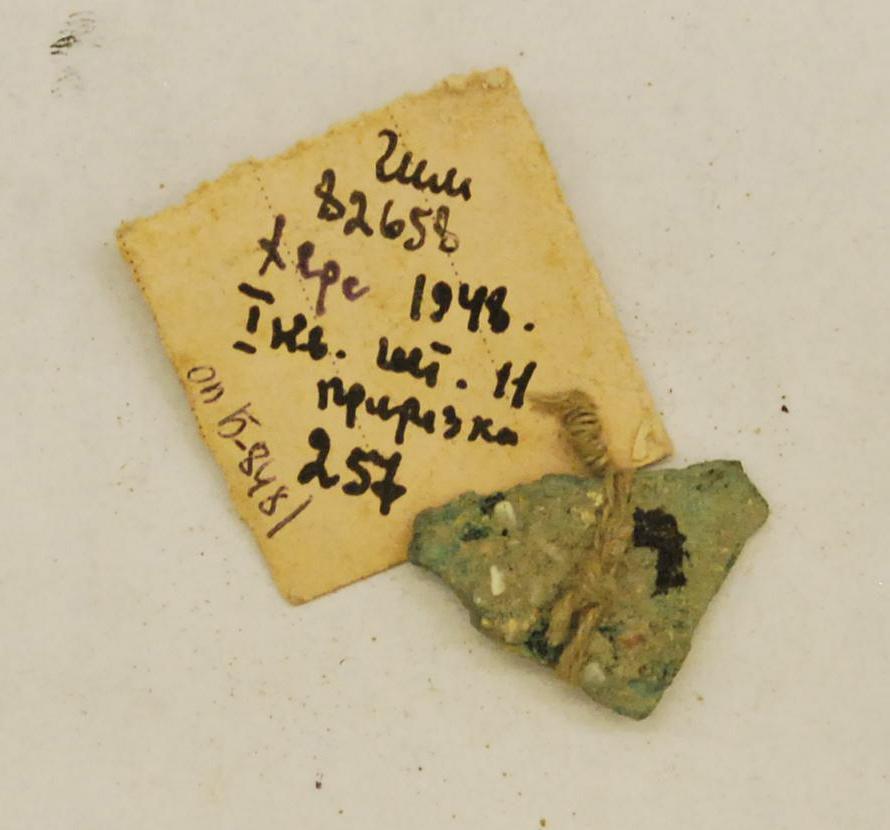 ГИМ
82658
Херс 1948.
I кв. шт. 11
прирезка
257
оп Б-848/